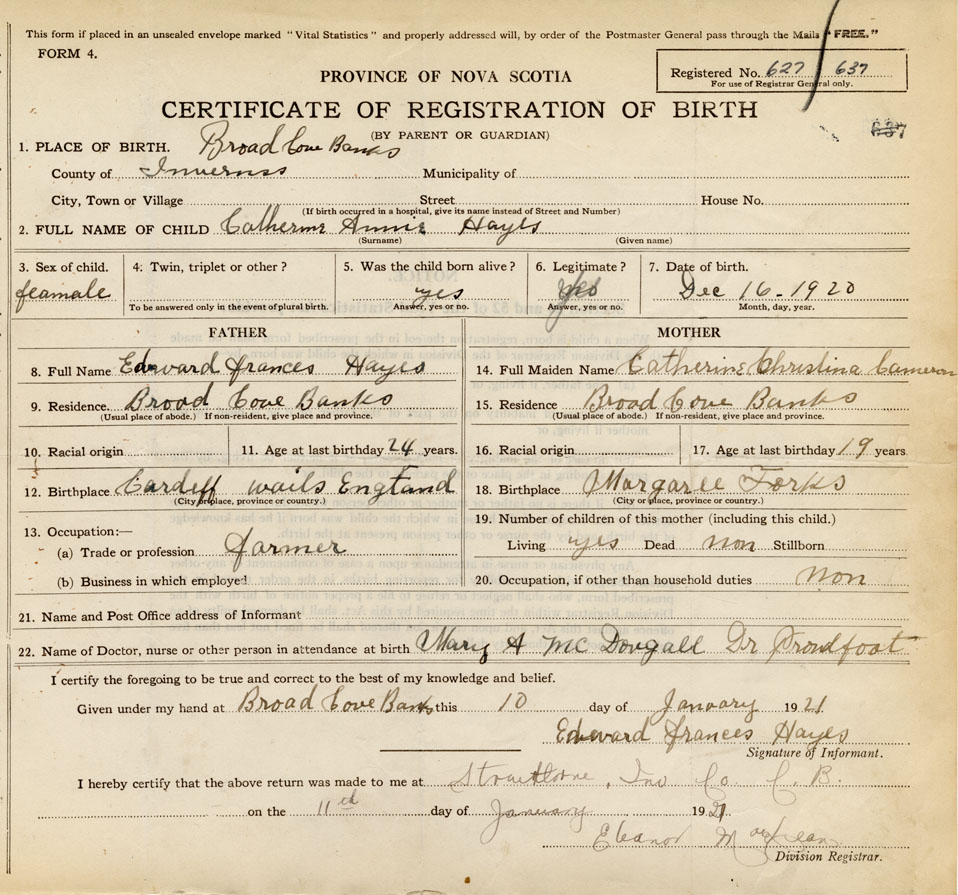 This form if placed in an unsealed envelope marked "Vital Statistics" and properly addressed will, by order of the Postmaster General pass through the Mails "FREE."
FORM 4.
PROVINCE OF NOVA SCOTIA
Registered No. 627 / 637
For use of Registrar General only.
CERTIFICATE OF REGISTRATION OF BIRTH
(BY PARENT OR GUARDIAN)
637
1. PLACE OF BIRTH. Broad Cove Banks
County of Invernss Municipality of
City, Town or Village Street House No.
(If birth occurred in a hospital, give its name instead of Street and Number)
2. FULL NAME OF CHILD Catherine Annie Hayes
(Surname) (Given name)
3. Sex of child. 4. Twin, triplet or other? 5. Was the child born alive? 6. Legitimate? 7. Date of birth.
feamale yes yes Dec 16-1920
To be answered only in the event of plural birth. Answer, yes or no. Answer, yes or no. Month, day, year.
FATHER MOTHER
8. Full Name Edward frances Hayes 14. Full Maiden Name Catherine Christina Cameron
9. Residence. Broad Cove Banks 15. Residence Broad Cove Banks
(Usual place of abode.) If non-resident, give place and province. (Usual place of abode.) If non-resident, give place and province.
10. Racial origin 11. Age at last birthday 24 years. 16. Racial origin 17. Age at last birthday 19 years
12. Birthplace Cardiff wails England 18. Birthplace Margaree Forks
(City or place, province or country.) (City or place, province or country.)
13. Occupation:— 19. Number of children of this mother (including this child.)
(a) Trade or profession farmer Living yes Dead non Stillborn
(b) Business in which employed 20. Occupation, if other than household duties non
21. Name and Post Office address of Informant
22. Name of Doctor, nurse or other person in attendance at birth Mary A Mc Dougall Dr Proudfoot
I certify the foregoing to be true and correct to the best of my knowledge and belief.
Given under my hand at Broad Cove Banks this 10 day of January 1921
Edward frances Hayes
Signature of Informant.
I hereby certify that the above return was made to me at Inv Co. C. B.
on the 11 day of January 1921
Eleanor
Division Registrar.